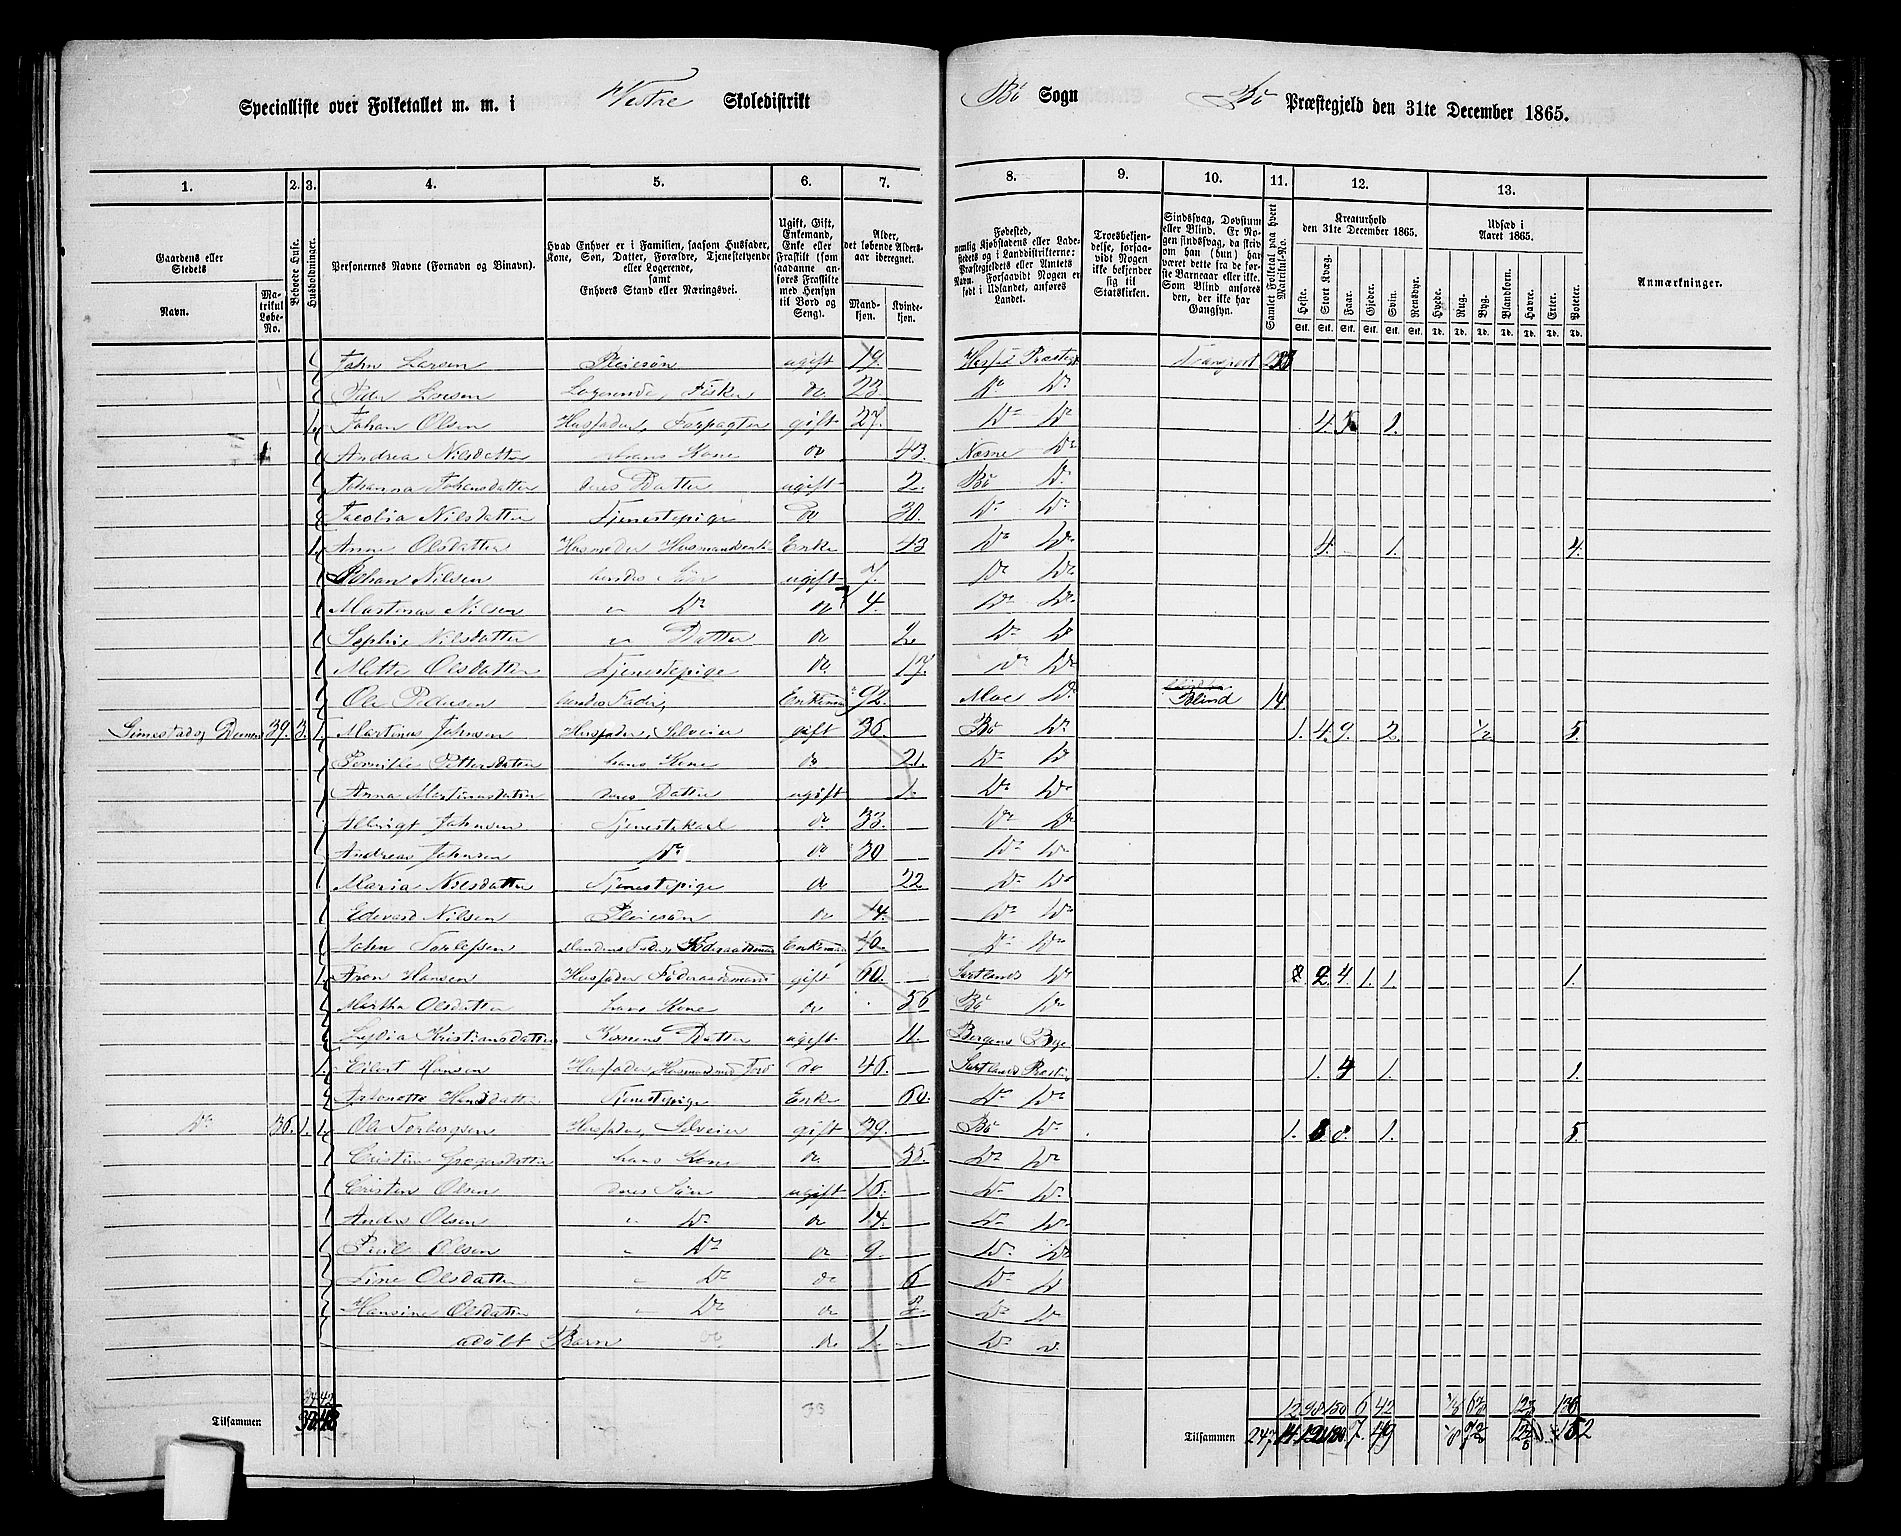 Specialliste over Folketallet m. m. i Vestre Skoledistrikt Bö Sogn Bö Præstegjeld den 31te December 1865.
1. 2. 3. 4. 5. 6. 7. 8. 9. 10. 11. 12. 13.
Gaardens eller Stedets
Navn.
Matrikul Løbe-No.
Beboede Huse.
Husholdninger.
Personernes Navne (Fornavn og Binavn).
Hvad Enhver er i Familien, saasom Husfader, Kone, Søn, Datter, Forældre, Tjenestetyende eller Logerende, samt Enhvers Stand eller Næringsvei.
Ugift, Gift, Enkemand, Enke eller Fraskilt (som saadanne anføres Fraskilte med Hensyn til Bord og Seng).
Alder, det løbende Aldersaar iberegnet.
Mandkjøn. Kvindekjøn.
Fødested, nemlig Kjøbstadens eller Ladestedets og i Landdistrikterne: Præstegjeldets eller Amtets Navn. Forsaavidt Nogen er født i Udlandet, anføres Landet.
Troesbekjendelse, forsaavidt Nogen ikke bekjender sig til Statskirken.
Sindssvag, Døvstum eller Blind. Er Nogen sindssvag, da skrives om han (hun) har været dette fra de første Barneaar eller ikke. Som Blind anføres den, der ikke har Gangsyn.
Samlet Folketal paa hvert Matrikul-No.
Kreaturhold den 31te December 1865.
Heste. Stort Kvæg. Faar. Gjeder. Svin. Rensdyr.
Udsæd i Aaret 1865.
Hvede. Rug. Byg. Blandkorn. Havre. Erter. Poteter.
Stk. Stk. Stk. Stk. Stk. Stk. Td. Td. Td. Td. Td. Td. Td.
Anmærkninger.
John Larsen Pleiesön ugift 19. Transport
Peder Larsen Logerende, Fisker do 23. Do Do
Johan Olsen Husfader, Forpagter gift 27. Do Do 4. 1.
Andrea Nilsdatter hans Kone do 43. Næsne Do
Johanna Johansdatter deres Datter ugift 2. Bö Do
Jacobia Nilsdatter Tjenestepige do 30. Do Do
Anne Olsdatter Husmoder Enke 43 Do Do 4. 1. 4.
Johan Nilsen hendes Sön ugift 7. Do Do
Martinus Nilsen " Do do 4. Do Do
Sophie Nilsdatter " Datter do 2. Do Do
Mette Olsdatter Tjenestepige do 17. Do Do
Ole Pedersen hendes Fader, Enkemand 92. Moe Do Blind 14
39. 3. 1. Martinus Johnsen Husfader, Selveier gift 36. Bö Do 1. 4. 9. 2. 1/2 5.
Pernilie Pettersdatter hans Kone do 21. Do Do
Anna Martinusdatter deres Datter ugift 1. Do Do
Albrigt Johnsen Tjenestekarl do 33. Do Do
Andreas Johnsen Do do 30 Do Do
Maria Nilsdatter Tjenestepige do 22 Do Do
Edevard Nilsen Pleiesön do 14. Do Do
John Enkemand Do Do
1. Aron Hansen Husfader Föderaadsmand gift 60. Sortlands Do 2. 4. 1. 1. 1.
Martha Olsdatter hans Kone do 56 Bö Do
Lydia Kristiansdatter Konens Datter ugift 11. Bergens Bye
1. Eilert Hansen Husfader, Husmand med Jord do 46. Sortlands 1. 4 1. 1.
Antonette Hansdatter Tjenestepige Enke 60. Do Do
Do 36. 1. 1. Ole Torbergsen Husfader, Selveier gift 39. Bö Do 1. 8. 1. 5.
hans Kone do 35. Do Do
Cristen Olsen deres Sön ugift 16. Do Do
Anders Olsen " Do do 14. Do Do
Paul Olsen " Do do 9. Do Do
Line Olsdatter " Do do 6 Do Do
Hansine Olsdatter " Do do Do Do
udöbt Barn do do 1. Do
33
12 98 150 6 42 136
Tilsammen
Tilsammen 247 14 7 49 152